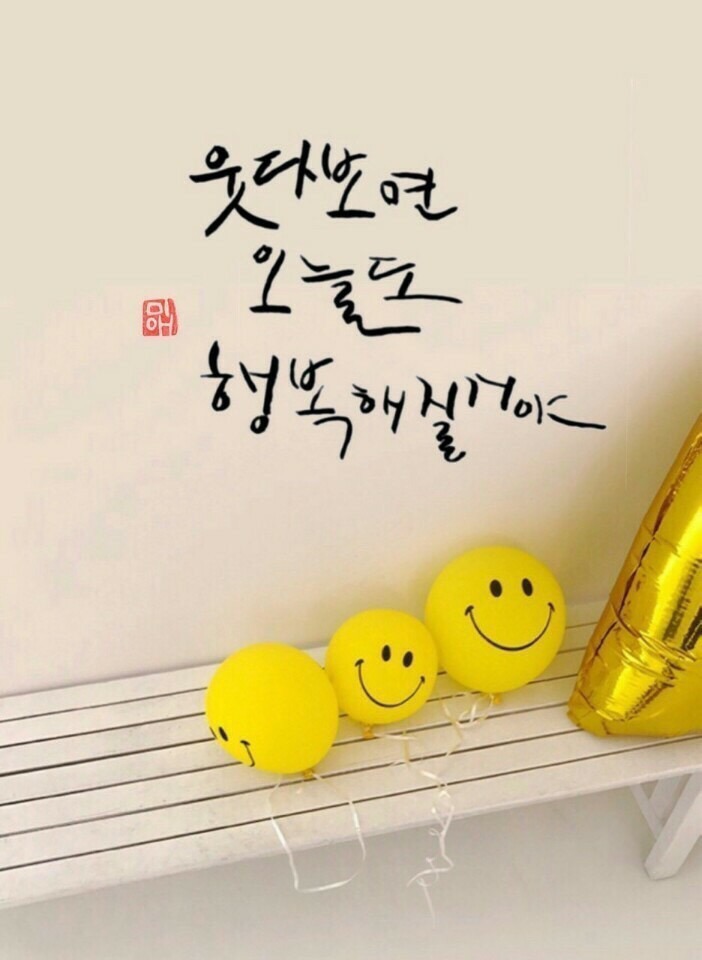 웃다보면
오늘도
미애
행복해질거야